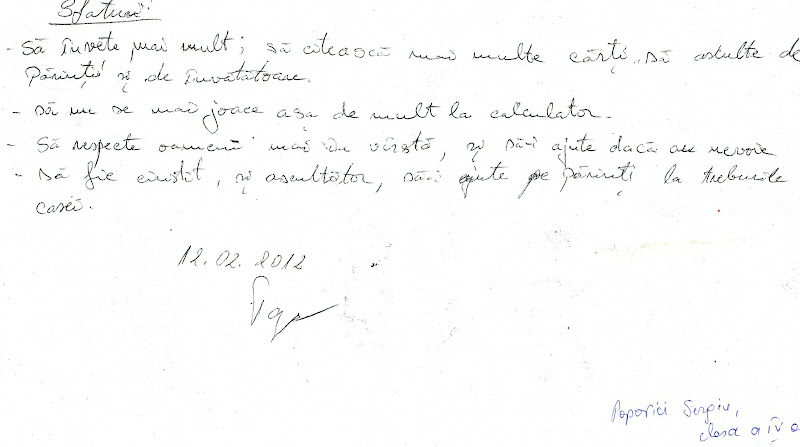 Sfaturi:
- Să învete mai mult; să citească mai multe cărți. să asculte de
părinții și de învatătoare.
- să nu se mai joace așa de mult la calculator.
- Să respecte oamenii mai în vîrstă, și să-i ajute dacă au nevoie
- să fie cinstit, și ascultător, să-i ajute pe părinți la treburile
casei.
12.02.2012
Popovici Sergiu,
clasa a IV a